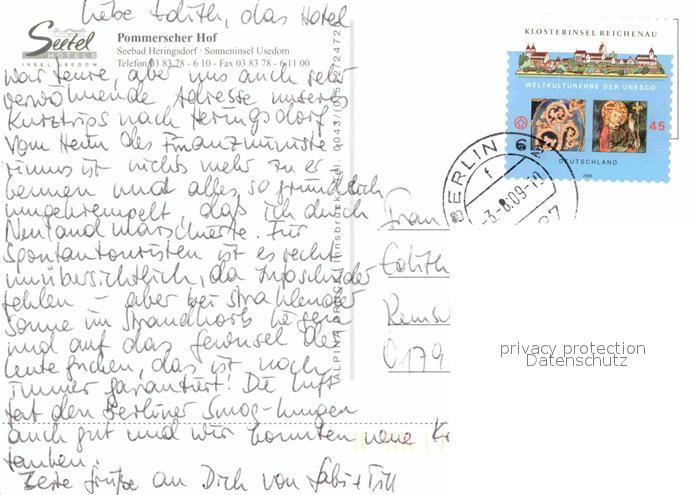 Liebe Edith, das Hotel
Seetel
HOTELS
INSEL USEDOM
Pommerscher Hof
Seebad Heringsdorf · Sonneninsel Usedom
Telefon 03 83 78 - 6 10 - Fax 03 83 78 - 6 11 00
war teure, aber uns auch sehr
verwöhnende Adresse unseres
Kurztrips nach Heringsdorf
Vom Heim des Finanzministe
riums ist nichts mehr zu er
kennen und alles so gründlich
umgekrempelt, daß ich durch
Neuland marschierte. Für
Spontantouristen ist es recht
unübersichtlich, da Infoschilder
fehlen – aber bei strahlender
Sonne im Strandkorb liegen
und auf das Gewusel der
Leute gucken, das ist noch
immer garantiert! Die Luft
tat den Berliner Smog-Lungen
auch gut und wir konnten neue Kr
tanken.
Liebe Grüße an Dich von Gabi + Till
ALPINA DRUCK Innsbruck
KLOSTERINSEL REICHENAU
WELTKULTURERBE DER UNESCO
45
DEUTSCHLAND
2008
BERLIN
f
-3.-8.09-19
Frau
Edith
Remsc
0179
privacy protection
Datenschutz